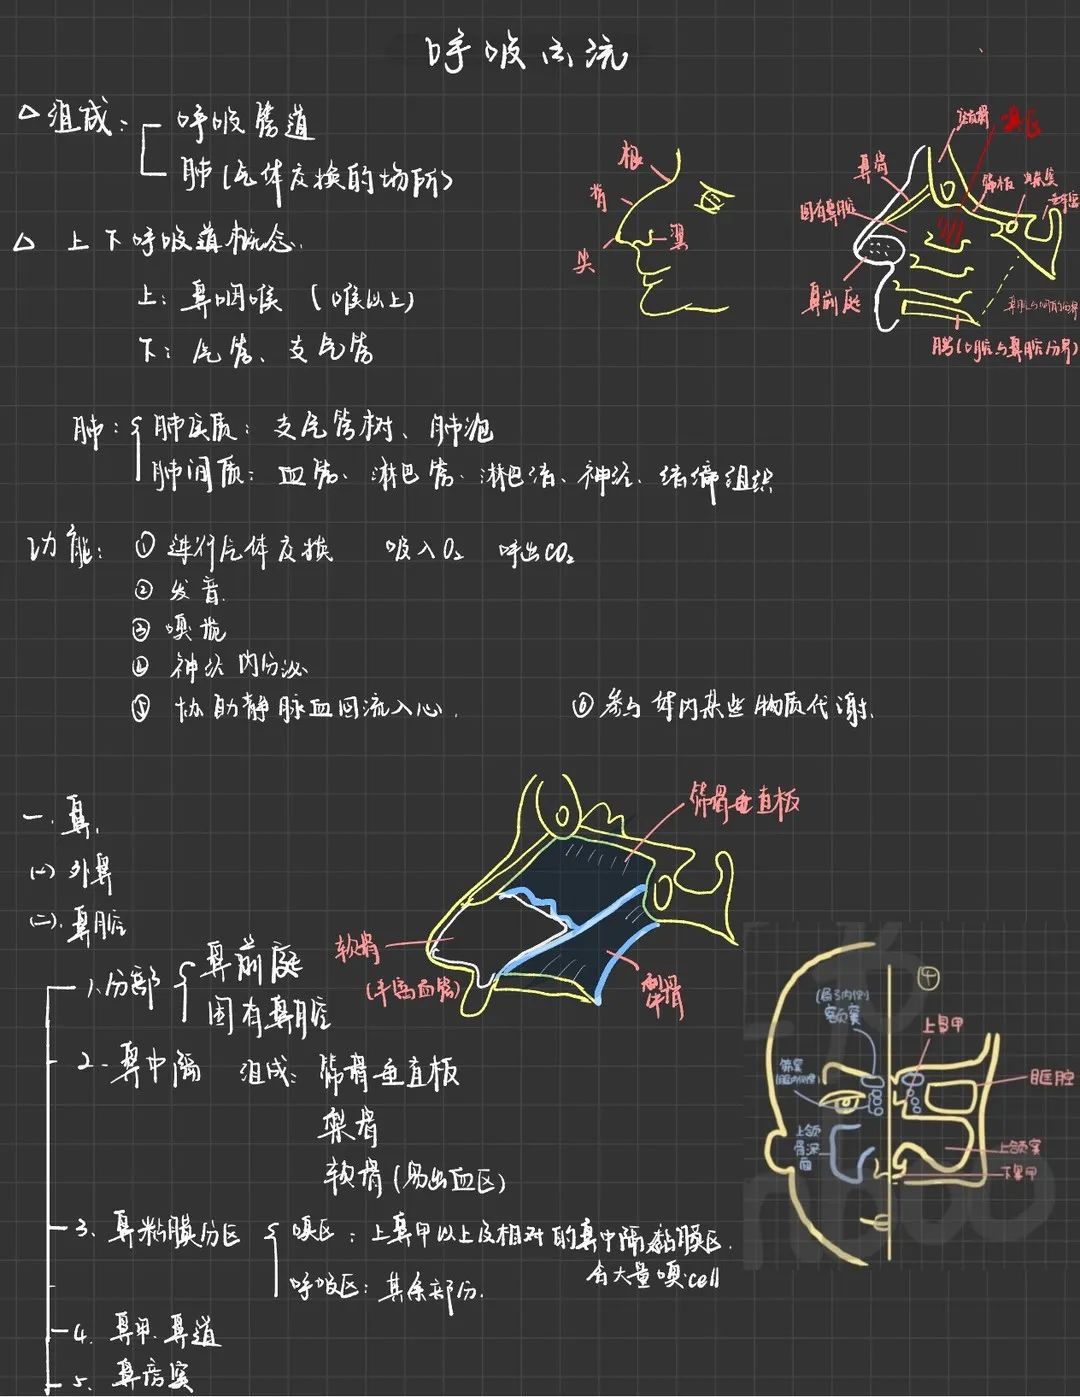 呼吸系统
△组成：呼吸管道
肺(气体交换的场所)
△ 上下呼吸道概念.
上：鼻咽喉 (喉以上)
下：气管、支气管
根
背
尖
翼
额骨
嗅区
鼻骨
筛板
蝶窦
垂体窝
固有鼻腔
鼻前庭
鼻腔与咽的分界
腭(口腔与鼻腔分界)
肺：肺实质：支气管树、肺泡
肺间质：血管、淋巴管、淋巴结、神经、结缔组织
功能：① 进行气体交换 吸入O₂ 呼出CO₂
② 发音.
③ 嗅觉
④ 神经内分泌
⑤ 协助静脉血回流入心. ⑥ 参与体内某些物质代谢.
一.鼻.
(一) 外鼻
(二).鼻腔
筛骨垂直板
软骨
犁骨
1.分部 鼻前庭
固有鼻腔
2.鼻中隔 组成：筛骨垂直板
犁骨
软骨(易出血区)
3. 鼻粘膜分区 嗅区：上鼻甲以上及相对的鼻中隔黏膜区.
含大量嗅cell
呼吸区：其余部分.
4. 鼻甲.鼻道
5. 鼻旁窦
(眉弓内侧)
额窦
上鼻甲
筛窦
眶腔
上颌骨深面
上颌窦
下鼻甲